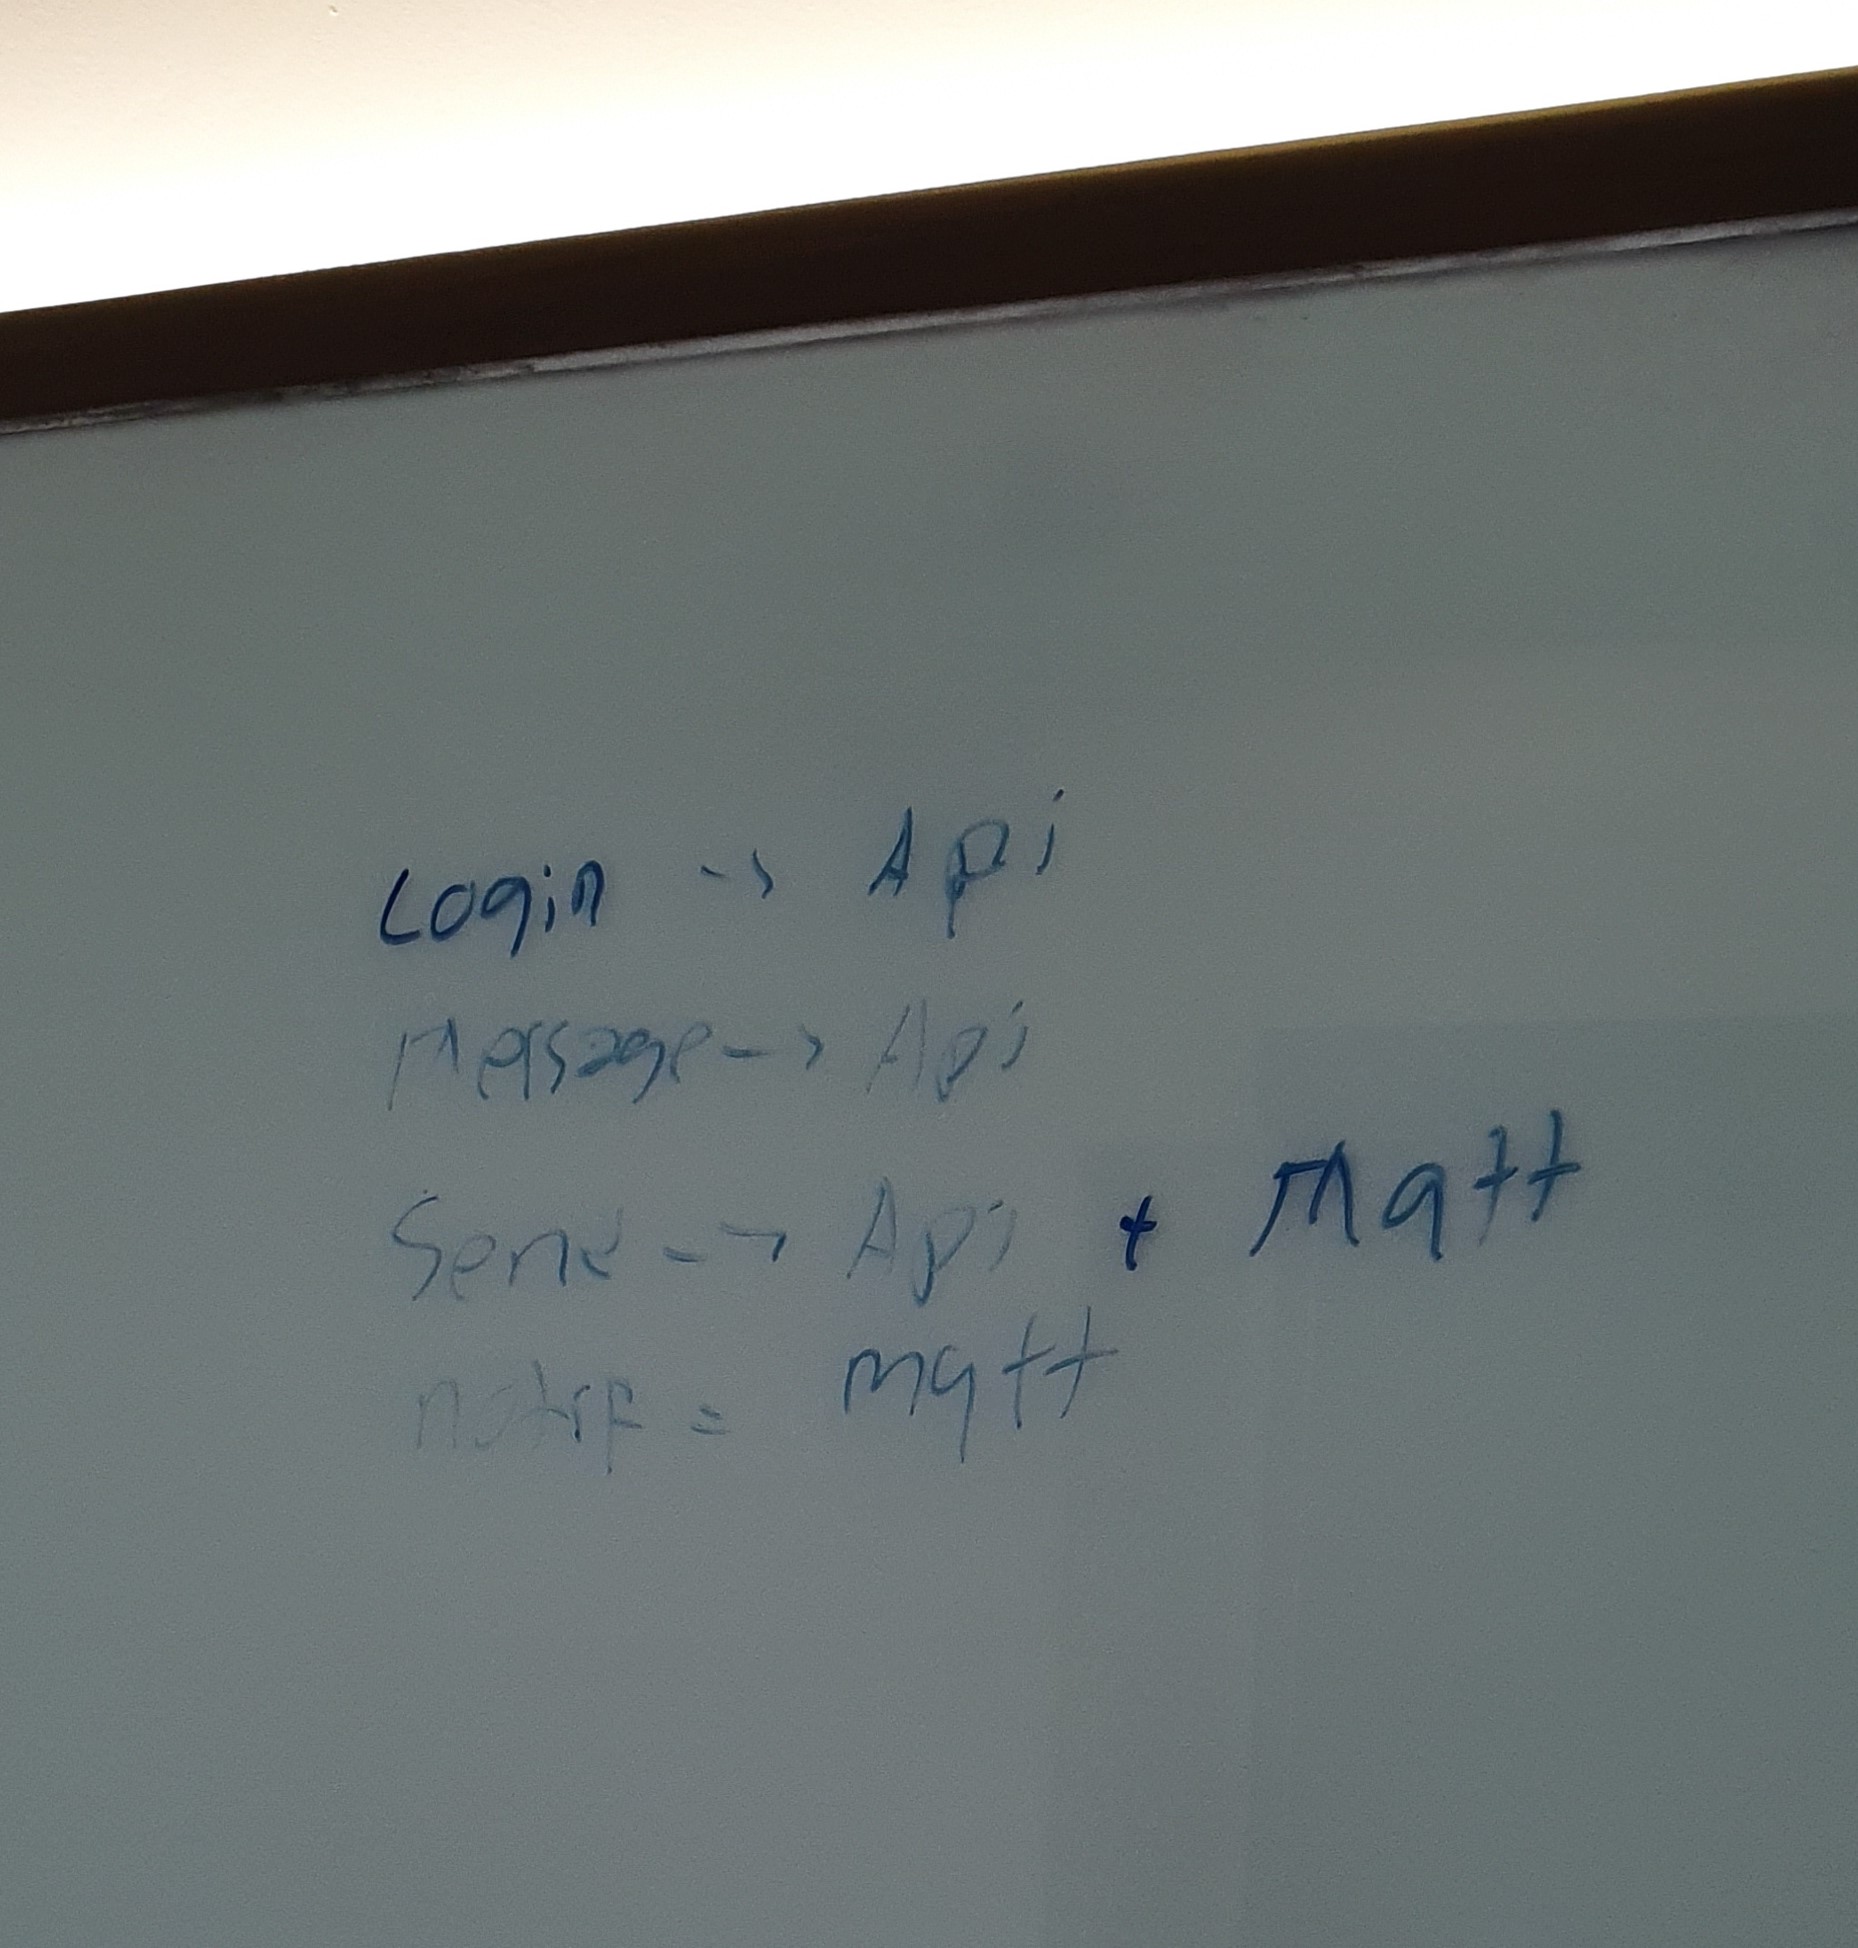 Login -> Api
Message --> Api
Send --> Api + Mqtt
notif = mqtt